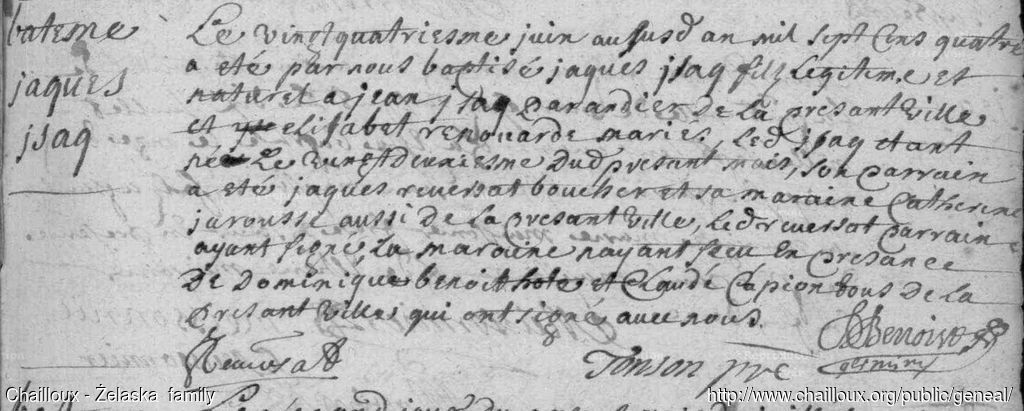 batesme
jaques
jsaq
Le vingt quatriesme juin au susd an mil sept Cens quatre
a eté par nous baptisé jaques jsaq filz legitime et
naturel a jean jsaq parandier de la presant ville
et elisabet renouarde maries, led jsaq etant
né Le vingt deuxiesme dud presant mois, son parrain
a eté jaques reversat boucher et sa maraine Catherine
jarousse aussi de la presant ville, led reversat parrain
ayant signé, la maraine nayant sceu En presance
De Dominique benoit hote et Claude Capion tous de la
presant ville qui ont signé avec nous.
Reversat
Tonson pre
Benoist
Chailloux - Żelaska family
http://www.chailloux.org/public/geneal/